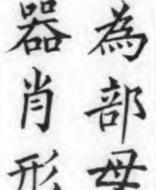 為部母
器肖形